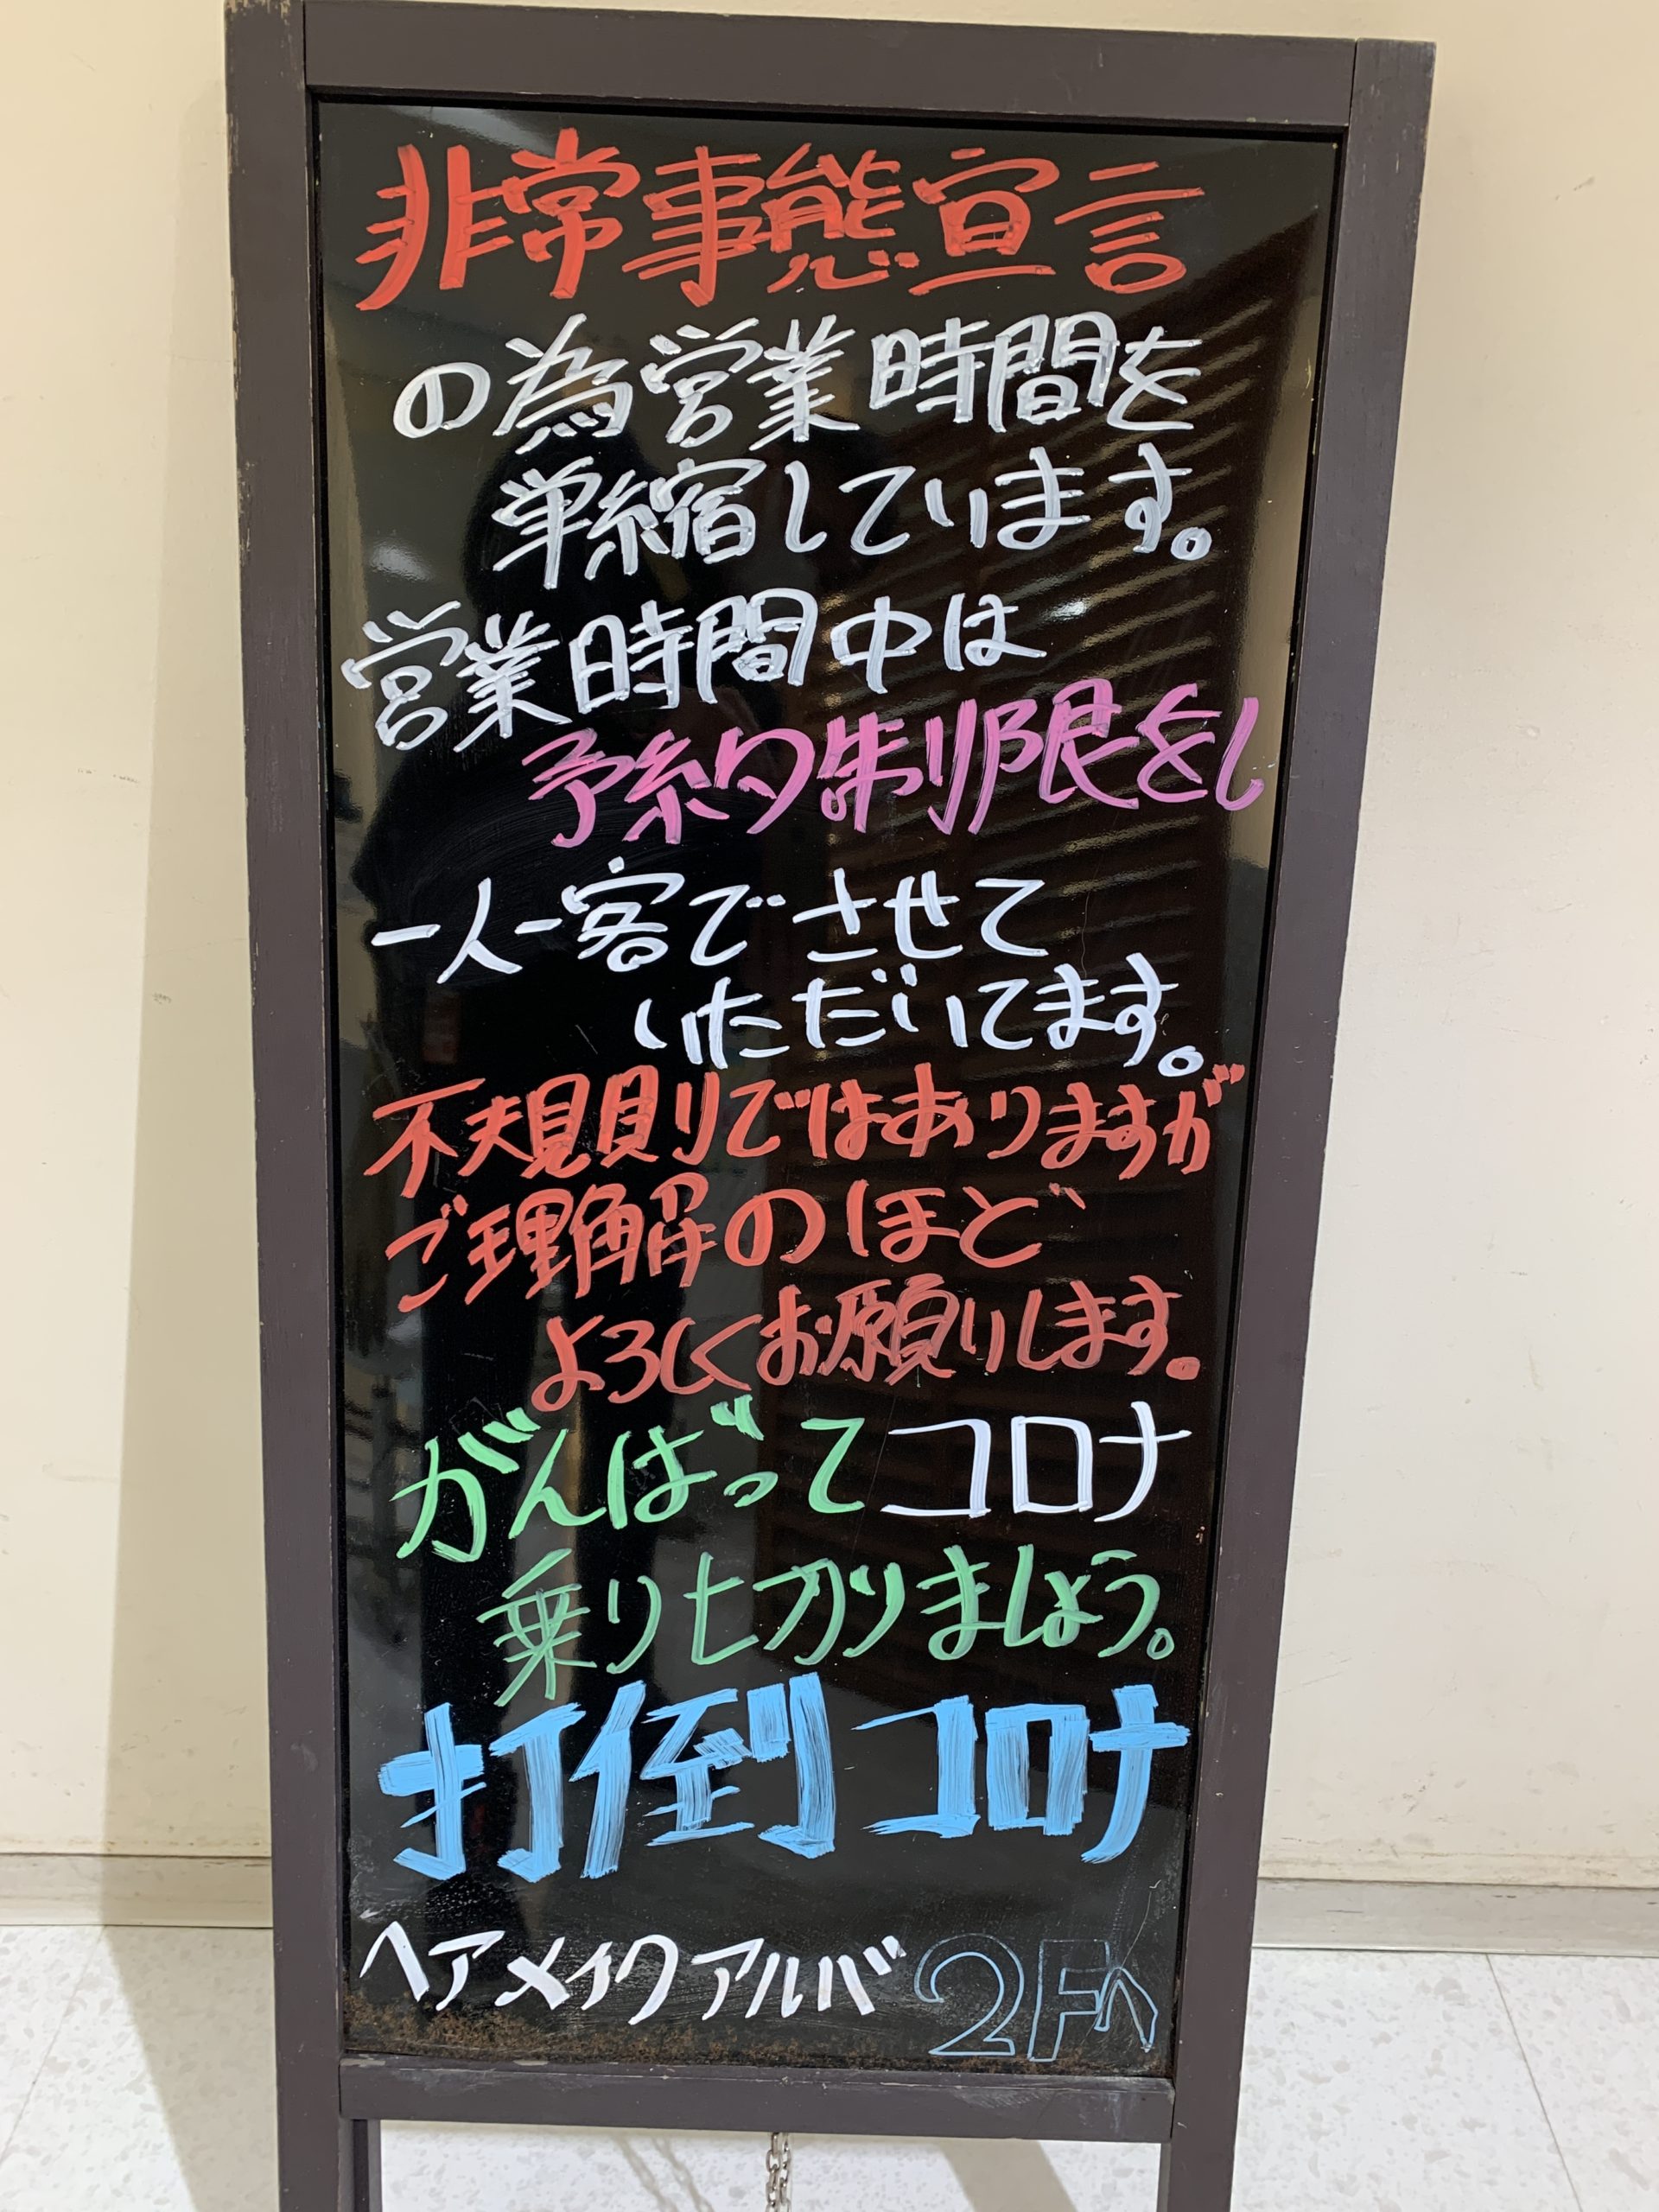 非常事態宣言
の為営業時間を
単縮しています。
営業時間中は
予約制限をし
一人一客でさせて
いただいてます。
不規則ではありますが
ご理解のほど
よろしくお願いします。
がんばってコロナ
乗り切りましょう。
打倒コロナ
ヘアメイクアルバ 2Fへ